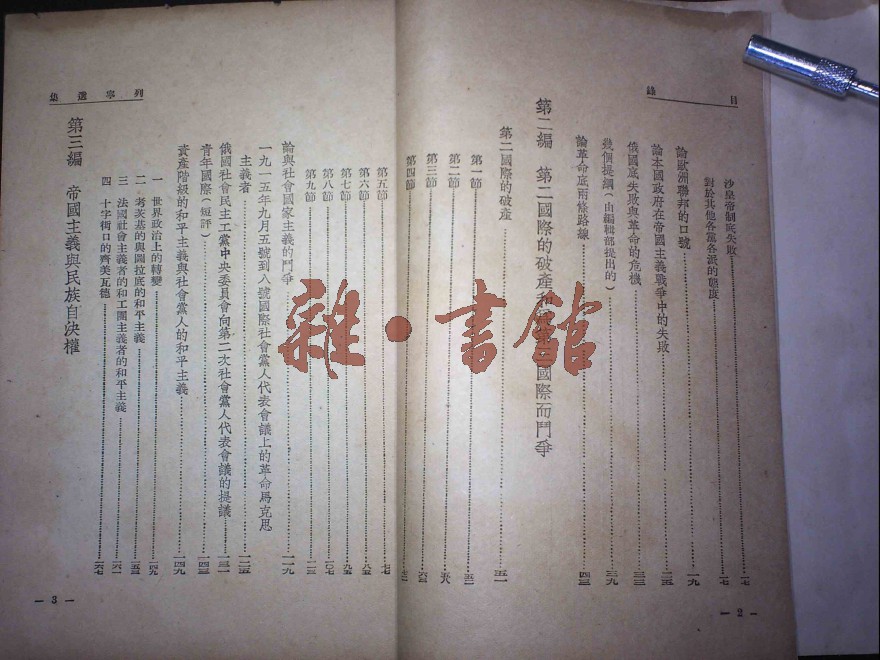 目錄
沙皇帝制底失敗……一七
對於其他各黨各派的態度……一七
論歐洲聯邦的口號……一九
論本國政府在帝國主義戰爭中的失敗……二五
俄國底失敗與革命的危機……三三
幾個提綱（由編輯部提出的）……三九
論革命底兩條路線……四三
第二編 第二國際的破產和 國際而鬥爭
第二國際的破產……五一
第一節……五一
第二節
第三節
第四節
第五節……七七
第六節……八五
第七節……九五
第八節……一〇七
第九節……一一三
論與社會國家主義的鬥爭……一一九
一九一五年九月五號到八號國際社會黨人代表會議上的革命馬克思
主義者……一二五
俄國社會民主工黨中央委員會向第二次社會黨人代表會議的提議……一三一
青年國際（短評）……一四三
資產階級的和平主義與社會黨人的和平主義……一四九
一 世界政治上的轉變……一四九
二 考茨基的與屠拉底的和平主義……一五三
三 法國社會主義者的和工團主義者的和平主義……一六一
四 十字街口的齊美瓦德……一六七
第三編 帝國主義與民族自決權
列寧選集
— 2 —
— 3 —
雜·書館